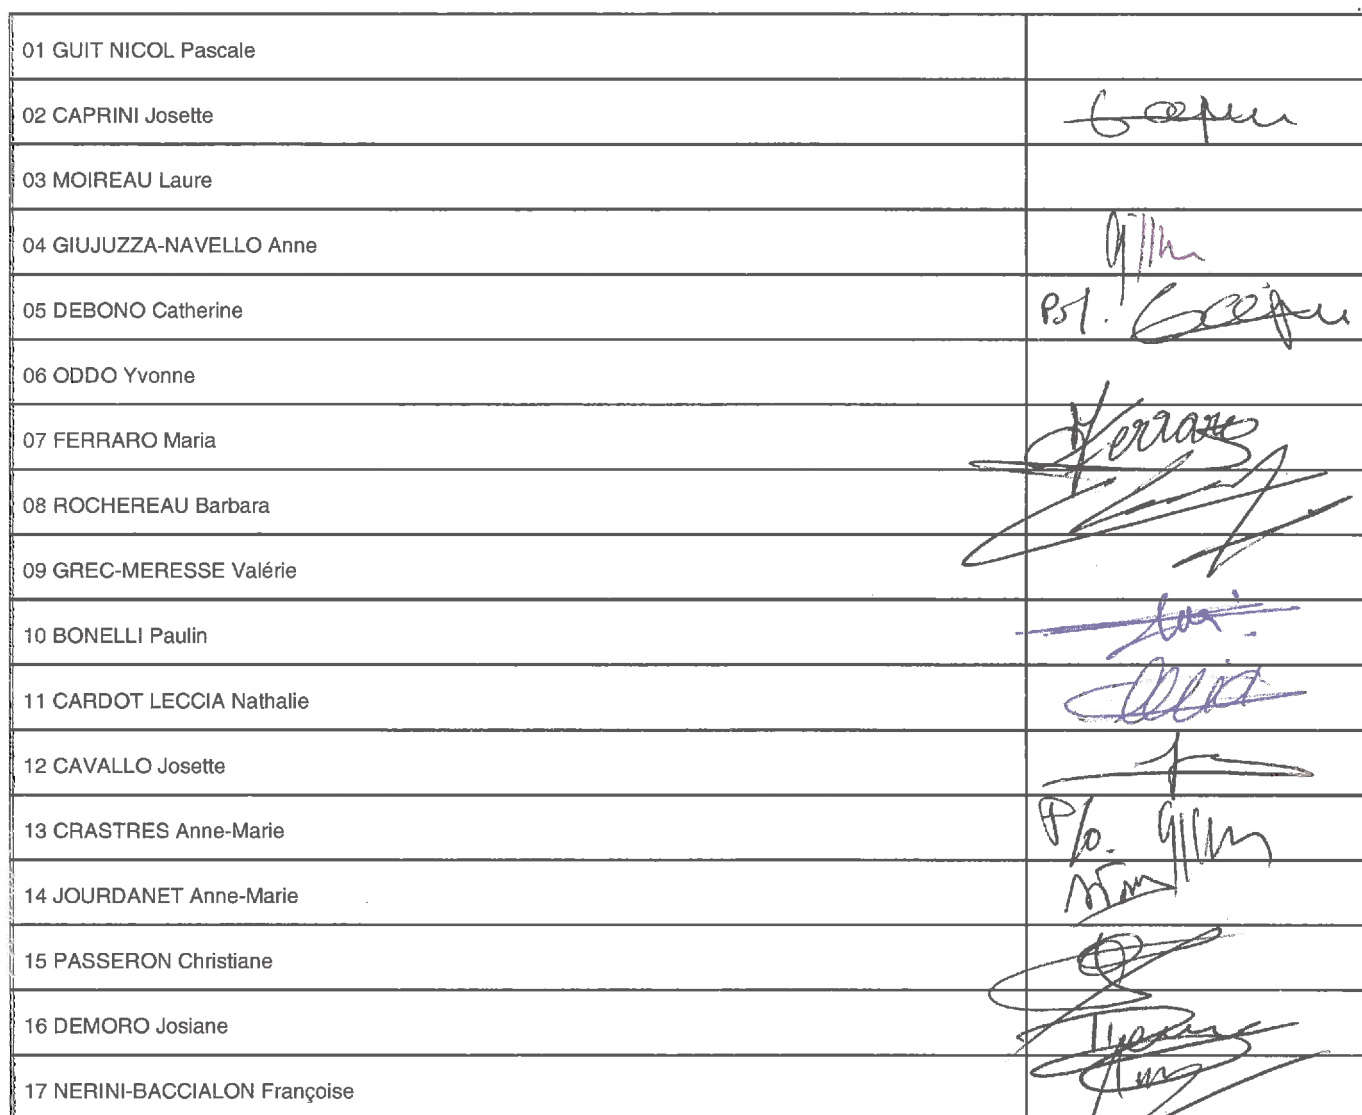 01 GUIT NICOL Pascale
02 CAPRINI Josette
03 MOIREAU Laure
04 GIUJUZZA-NAVELLO Anne
05 DEBONO Catherine
06 ODDO Yvonne
07 FERRARO Maria Ferraro
08 ROCHEREAU Barbara
09 GREC-MERESSE Valérie
10 BONELLI Paulin
11 CARDOT LECCIA Nathalie
12 CAVALLO Josette
13 CRASTRES Anne-Marie P/o.
14 JOURDANET Anne-Marie
15 PASSERON Christiane
16 DEMORO Josiane
17 NERINI-BACCIALON Françoise